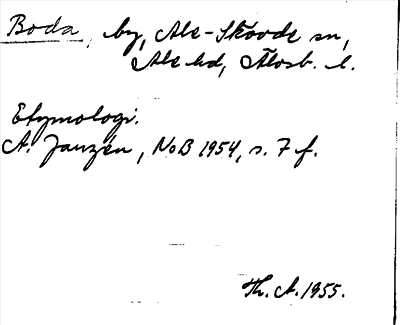 Boda, by, Ale-Skövde sn,
Ale hd, Älvsb. l.
Etymologi.
A. Janzén, NoB 1954, s. 7 f.
Th. A. 1955.